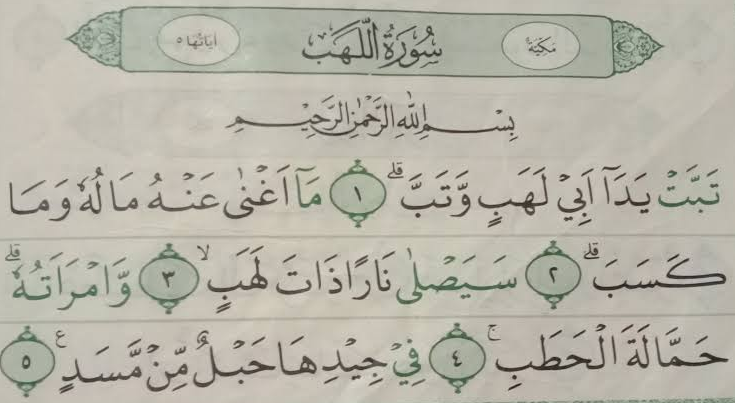 مَكِّيَّةٌ سُورَةُ اللَّهَبِ اٰيَاتُهَا ٥
بِسْمِ اللّٰهِ الرَّحْمٰنِ الرَّحِيْمِ
تَبَّتْ يَدَآ اَبِيْ لَهَبٍ وَّتَبَّۗ ١ مَآ اَغْنٰى عَنْهُ مَالُهٗ وَمَا
كَسَبَۗ ٢ سَيَصْلٰى نَارًا ذَاتَ لَهَبٍۙ ٣ وَّامْرَاَتُهٗۗ
حَمَّالَةَ الْحَطَبِۚ ٤ فِيْ جِيْدِهَا حَبْلٌ مِّنْ مَّسَدٍ ࣖ ٥